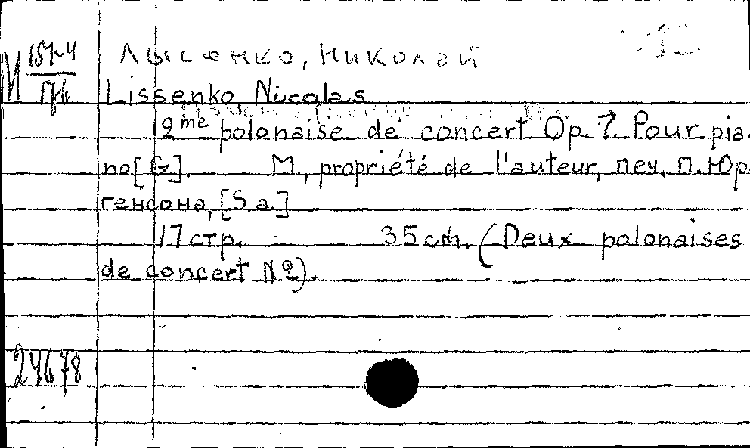 Лысенко, Николай
М 151-4
Lissenko Nicolas
2me polonaise de concert Op. 7. Pour pia-
no [G]. М., propriété de l'auteur, печ. П. Юр-
генсона, [S.a.]
17 стр. 35 cm. (Deux polonaises
de concert №2).
24678